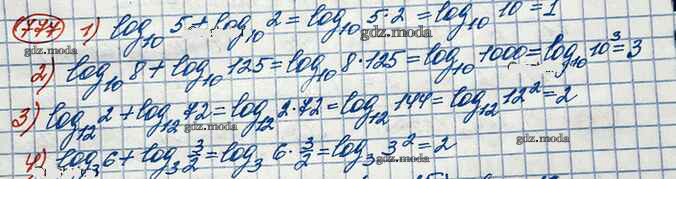 777 1) log₁₀ 5 + log₁₀ 2 = log₁₀ 5·2 = log₁₀ 10 = 1
gdz.moda
gdz.moda
2) log₁₀ 8 + log₁₀ 125 = log₁₀ 8·125 = log₁₀ 1000 = log₁₀ 10³ = 3
3) log₁₂ 2 + log₁₂ 72 = log₁₂ 2·72 = log₁₂ 144 = log₁₂ 12² = 2
gdz.moda
4) log₃ 6 + log₃ 3/2 = log₃ 6·3/2 = log₃ 3² = 2
gdz.moda